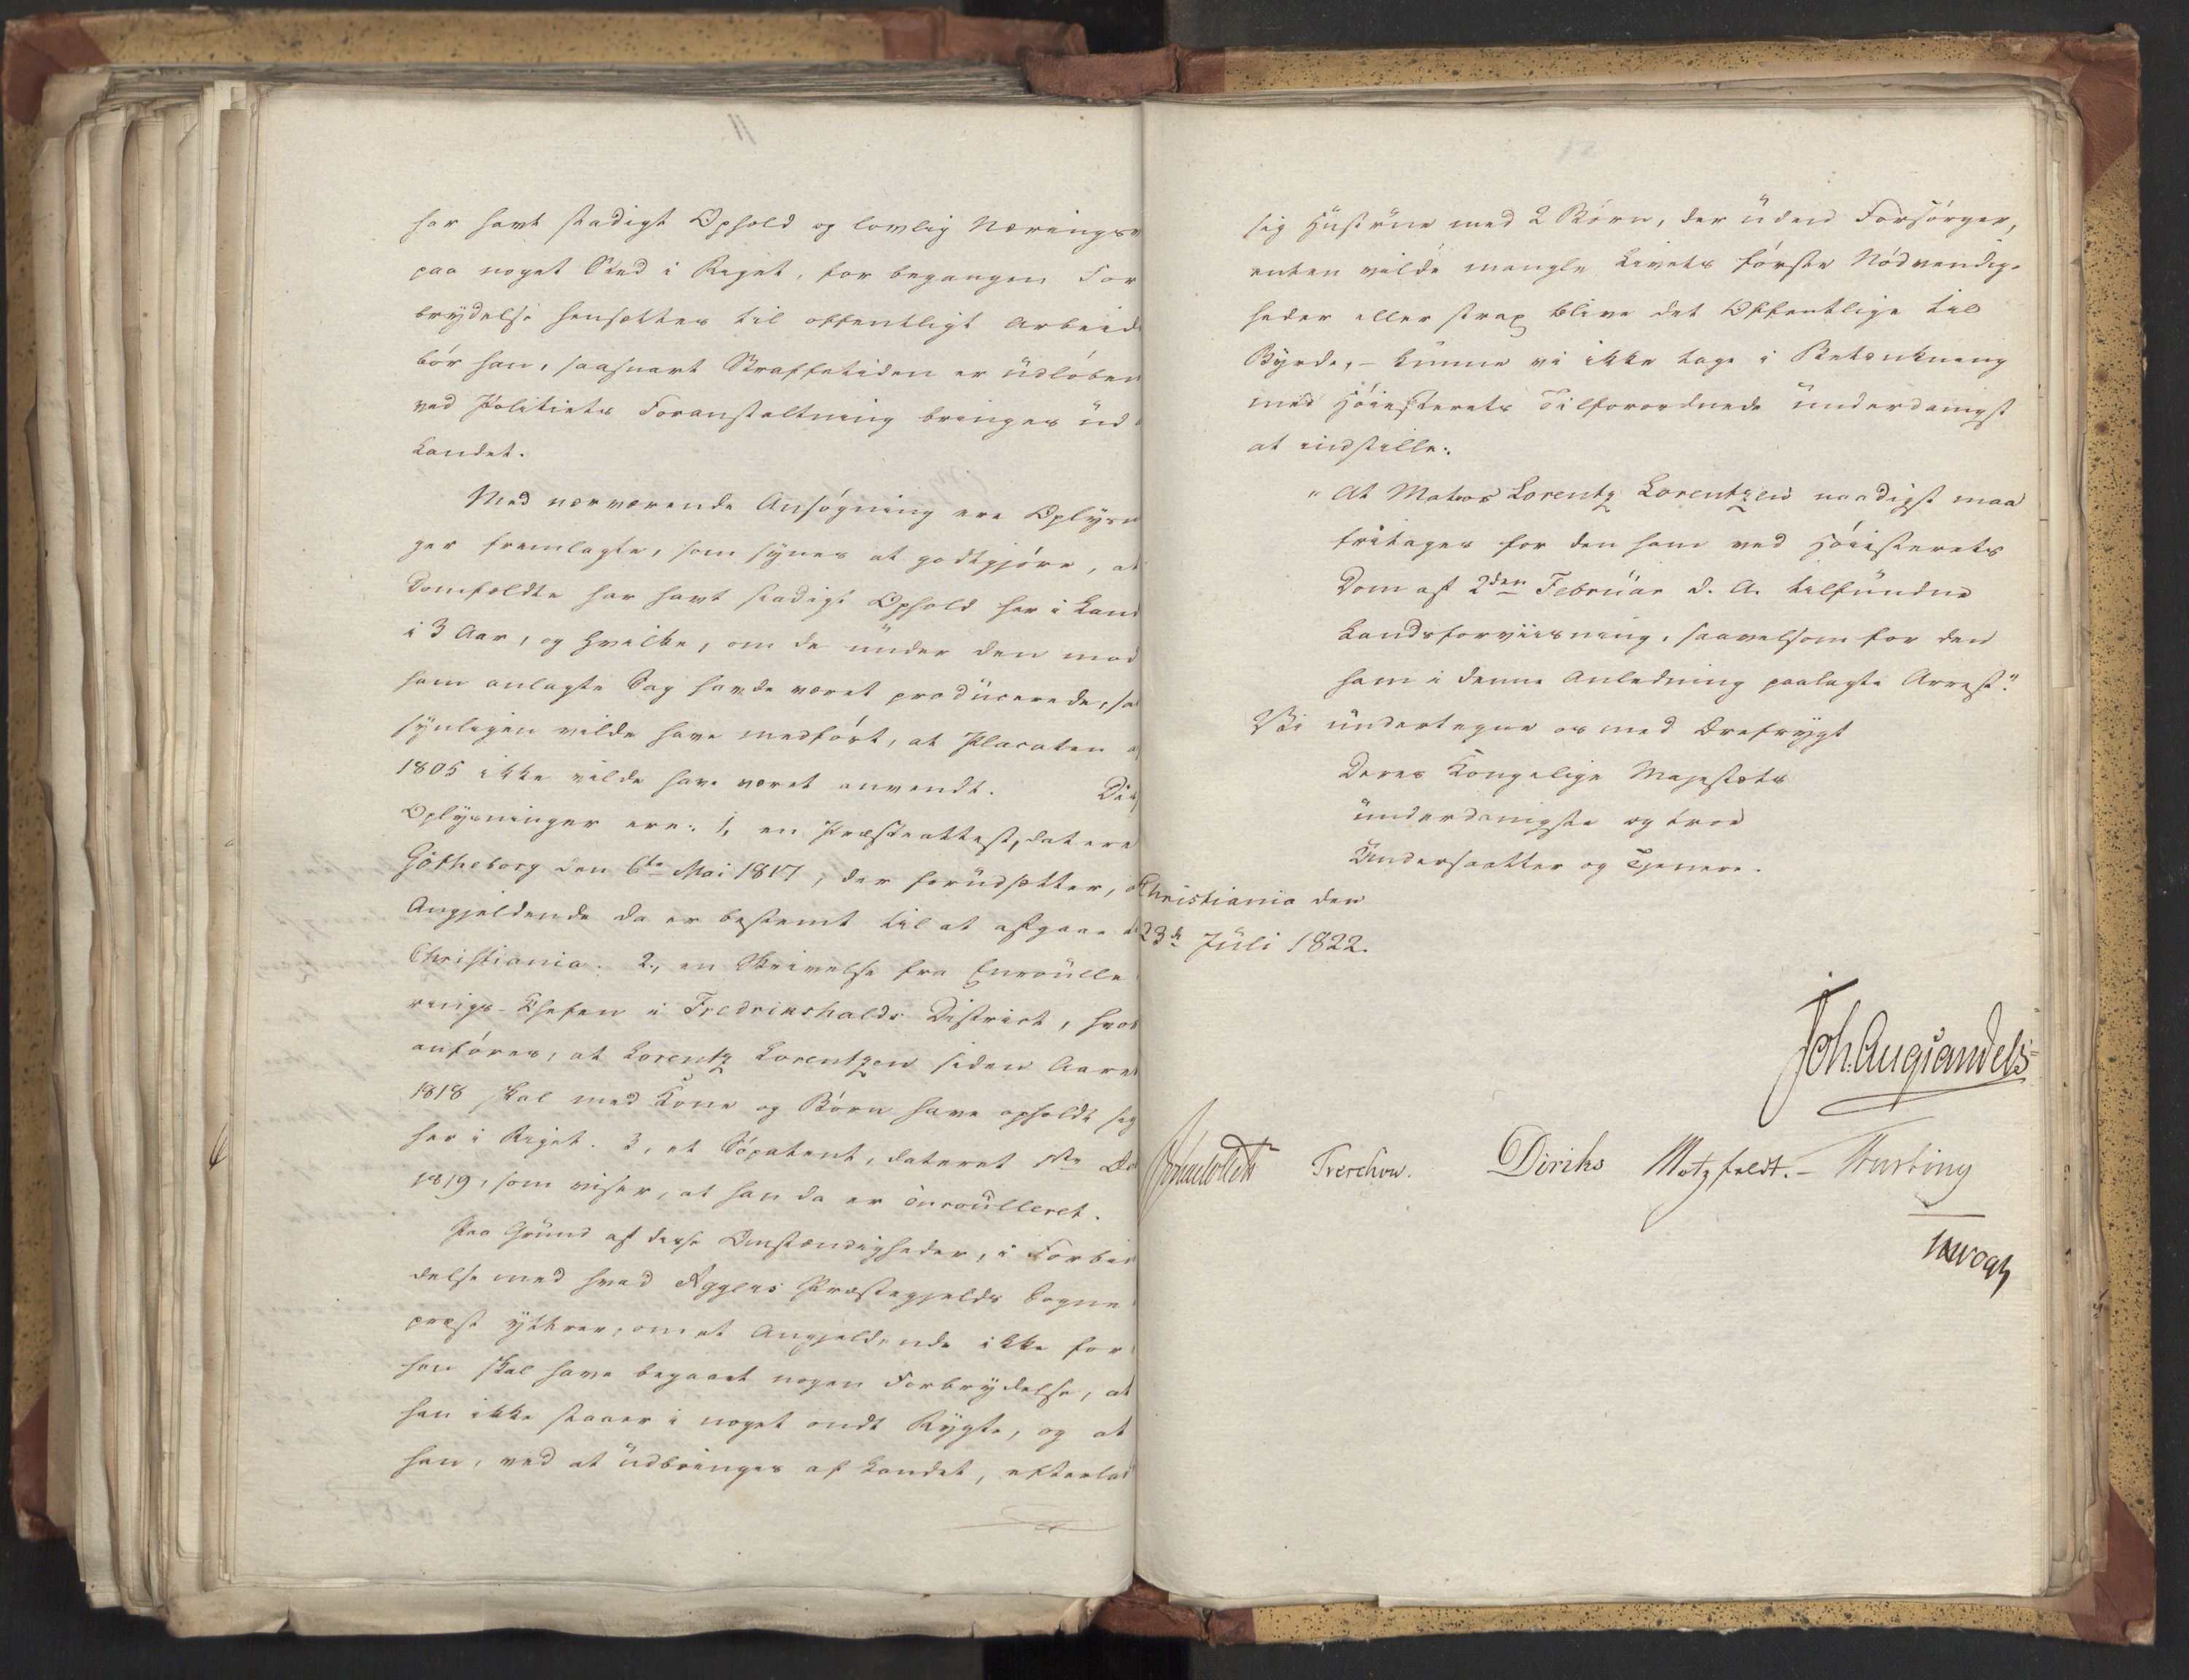 har havt stadigt Ophold og lovlig Nærings
paa noget Sted i Riget, for begangen For
brydelse hensættes til offentligt Arbeide
bør han, saasnart Straffetiden er udløben
ved Politiets Foranstaltning bringes ud
Landet.
Med nærværende Ansøgning ere Oplysn
ger fremlagte, som synes at godtgjøre, at
Domfældte har havt stadigt Ophold her i Land
i 3 Aar, og hvilke, om de under den mod
ham anlagte Sag havde været producerede, sa
synligen vilde have medført, at Placaten a
1805 ikke vilde have været anvendt. Dis
Oplysninger ere: 1, en Præsteattest, datere
Gøtheborg den 6te Mai 1817, der forudsætter, a
Angjeldende da er bestemt til at afgaae
Christiania. 2., en Skrivelse fra Enroulle
rings-Chefen i Fredrikshalds District, hvor
anføres, at Lorentz Lorentzen siden Aaret
1818 skal med Kone og Børn have opholdt sig
her i Riget. 3, et Søpatent, dateret 1ste
1819, som viser, at han da er enroulleret.
Paa Grund af disse Omstændigheder, i Forbin
delse med hvad Rygges Præstegjelds Sogne
præst yttrer, om at Angjeldende ikke for
hen skal have begaaet nogen Forbrydelse, at
han ikke staaer i noget ondt Rygte, og at
han, ved at udbringes af Landet, efterlad
sig Hustrue med 2 Børn, der uden Forsørger,
enten vilde mangle Livets første Nødvendig-
heder eller strax blive det Offentlige til
Byrde, - kunne vi ikke tage i Betænkning
med Høiesterets Tilforordnede underdanigst
at indstille:
"At Matros Lorentz Lorentzen naadigst maa
fritages for den ham ved Høiesterets
Dom af 2den Februar d. A. tilfundne
Landsforviisning, saavelsom for den
ham i denne Anledning paalagte Arrest."
Vi undertegne os med Ærefrygt
Deres Kongelige Majestæts
underdanigste og troe
Undersaatter og Tjenere.
Christiania den
23de Juli 1822.
Joh. Aug Sandels
Sommerhielm Treschow. Diriks Motzfeldt.- Fasting